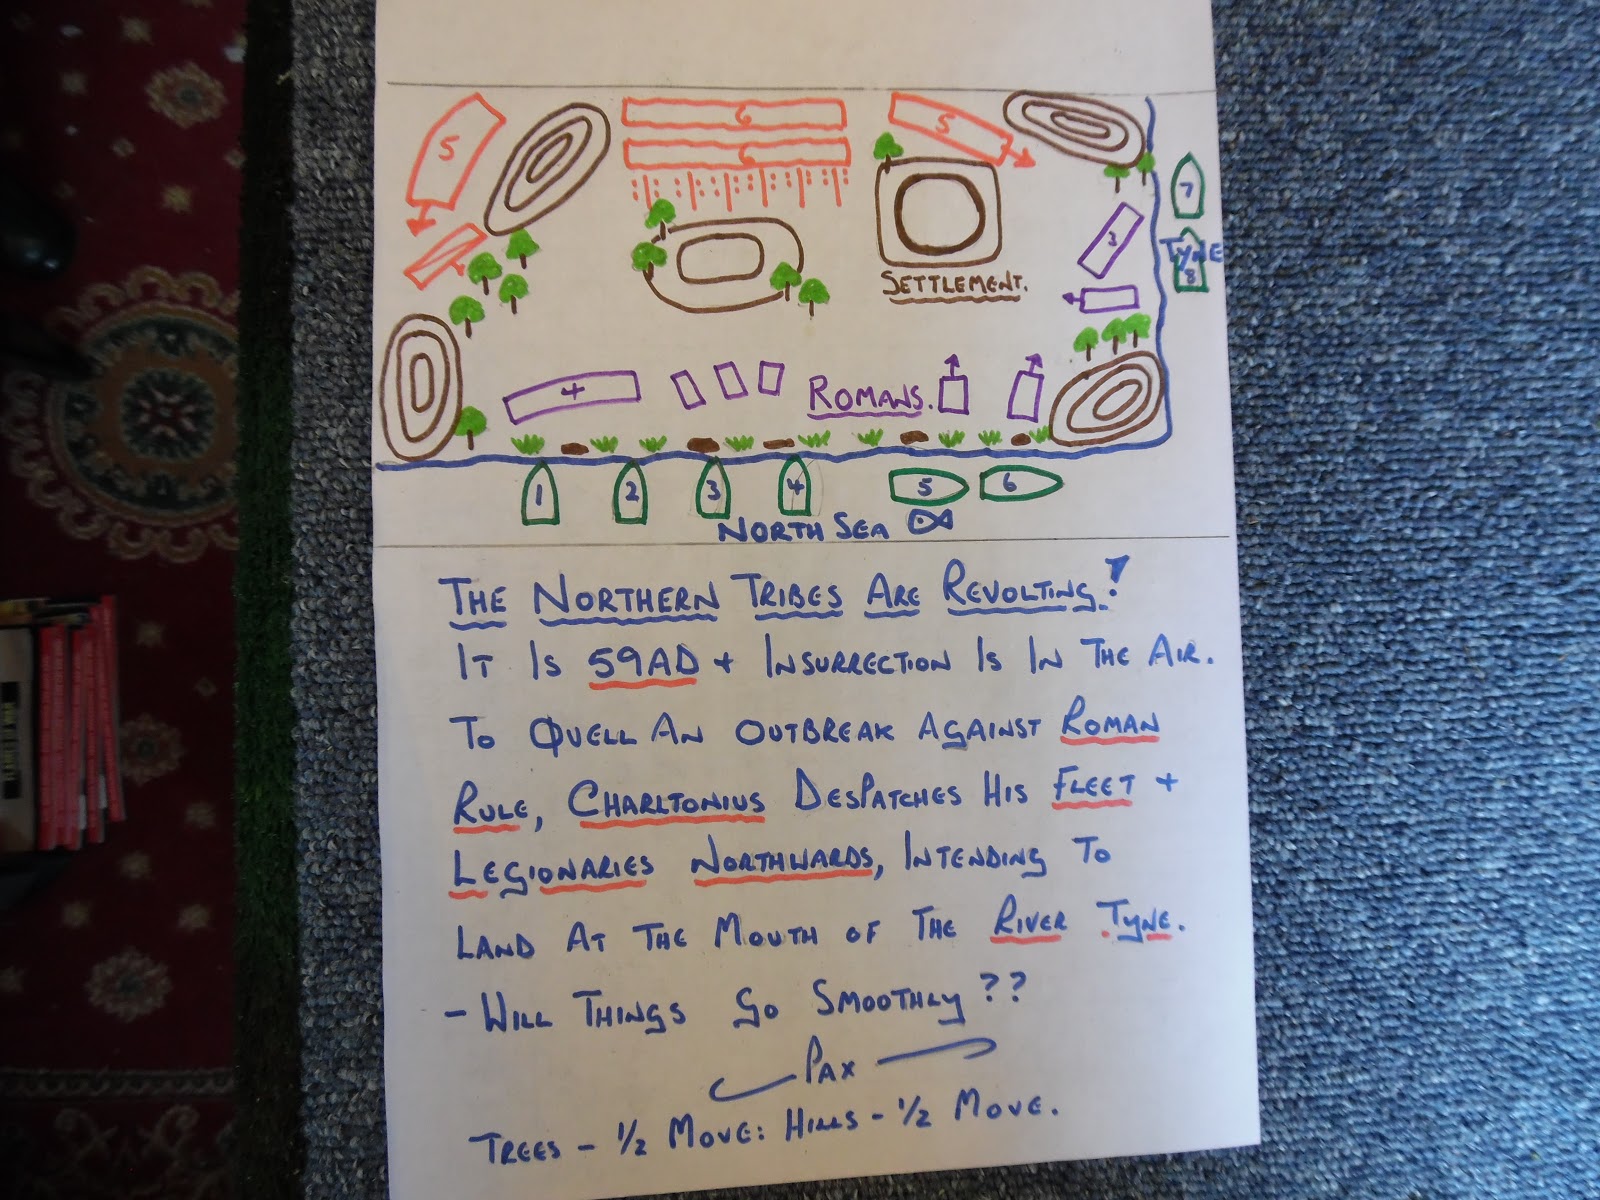 5
6
6
5
7
TYNE
8
3
SETTLEMENT.
4
ROMANS.
1
2
3
4
5
6
NORTH SEA
THE NORTHERN TRIBES ARE REVOLTING!
IT IS 59AD + INSURRECTION IS IN THE AIR.
TO QUELL AN OUTBREAK AGAINST ROMAN
RULE, CHARLTONIUS DESPATCHES HIS FLEET +
LEGIONARIES NORTHWARDS, INTENDING TO
LAND AT THE MOUTH OF THE RIVER TYNE.
- WILL THINGS GO SMOOTHLY??
PAX
TREES - 1/2 MOVE: HILLS - 1/2 MOVE.